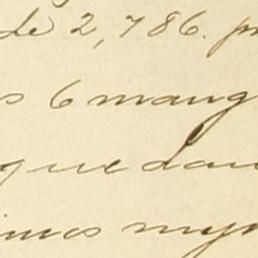 de 2,786. p
s 6 mang
que dan
imos my